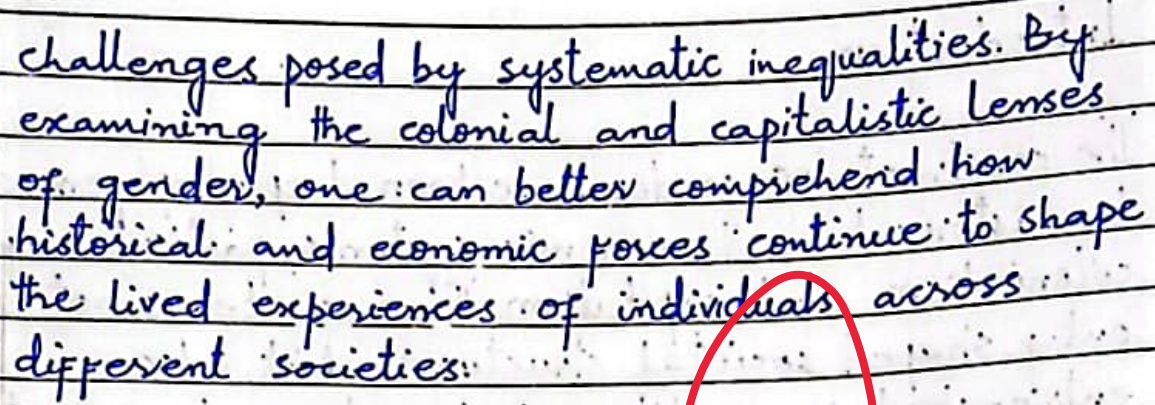 challenges posed by systematic inequalities. By
examining the colonial and capitalistic lenses
of gender, one can better comprehend how
historical and economic forces continue to shape
the lived experiences of individuals across
different societies.